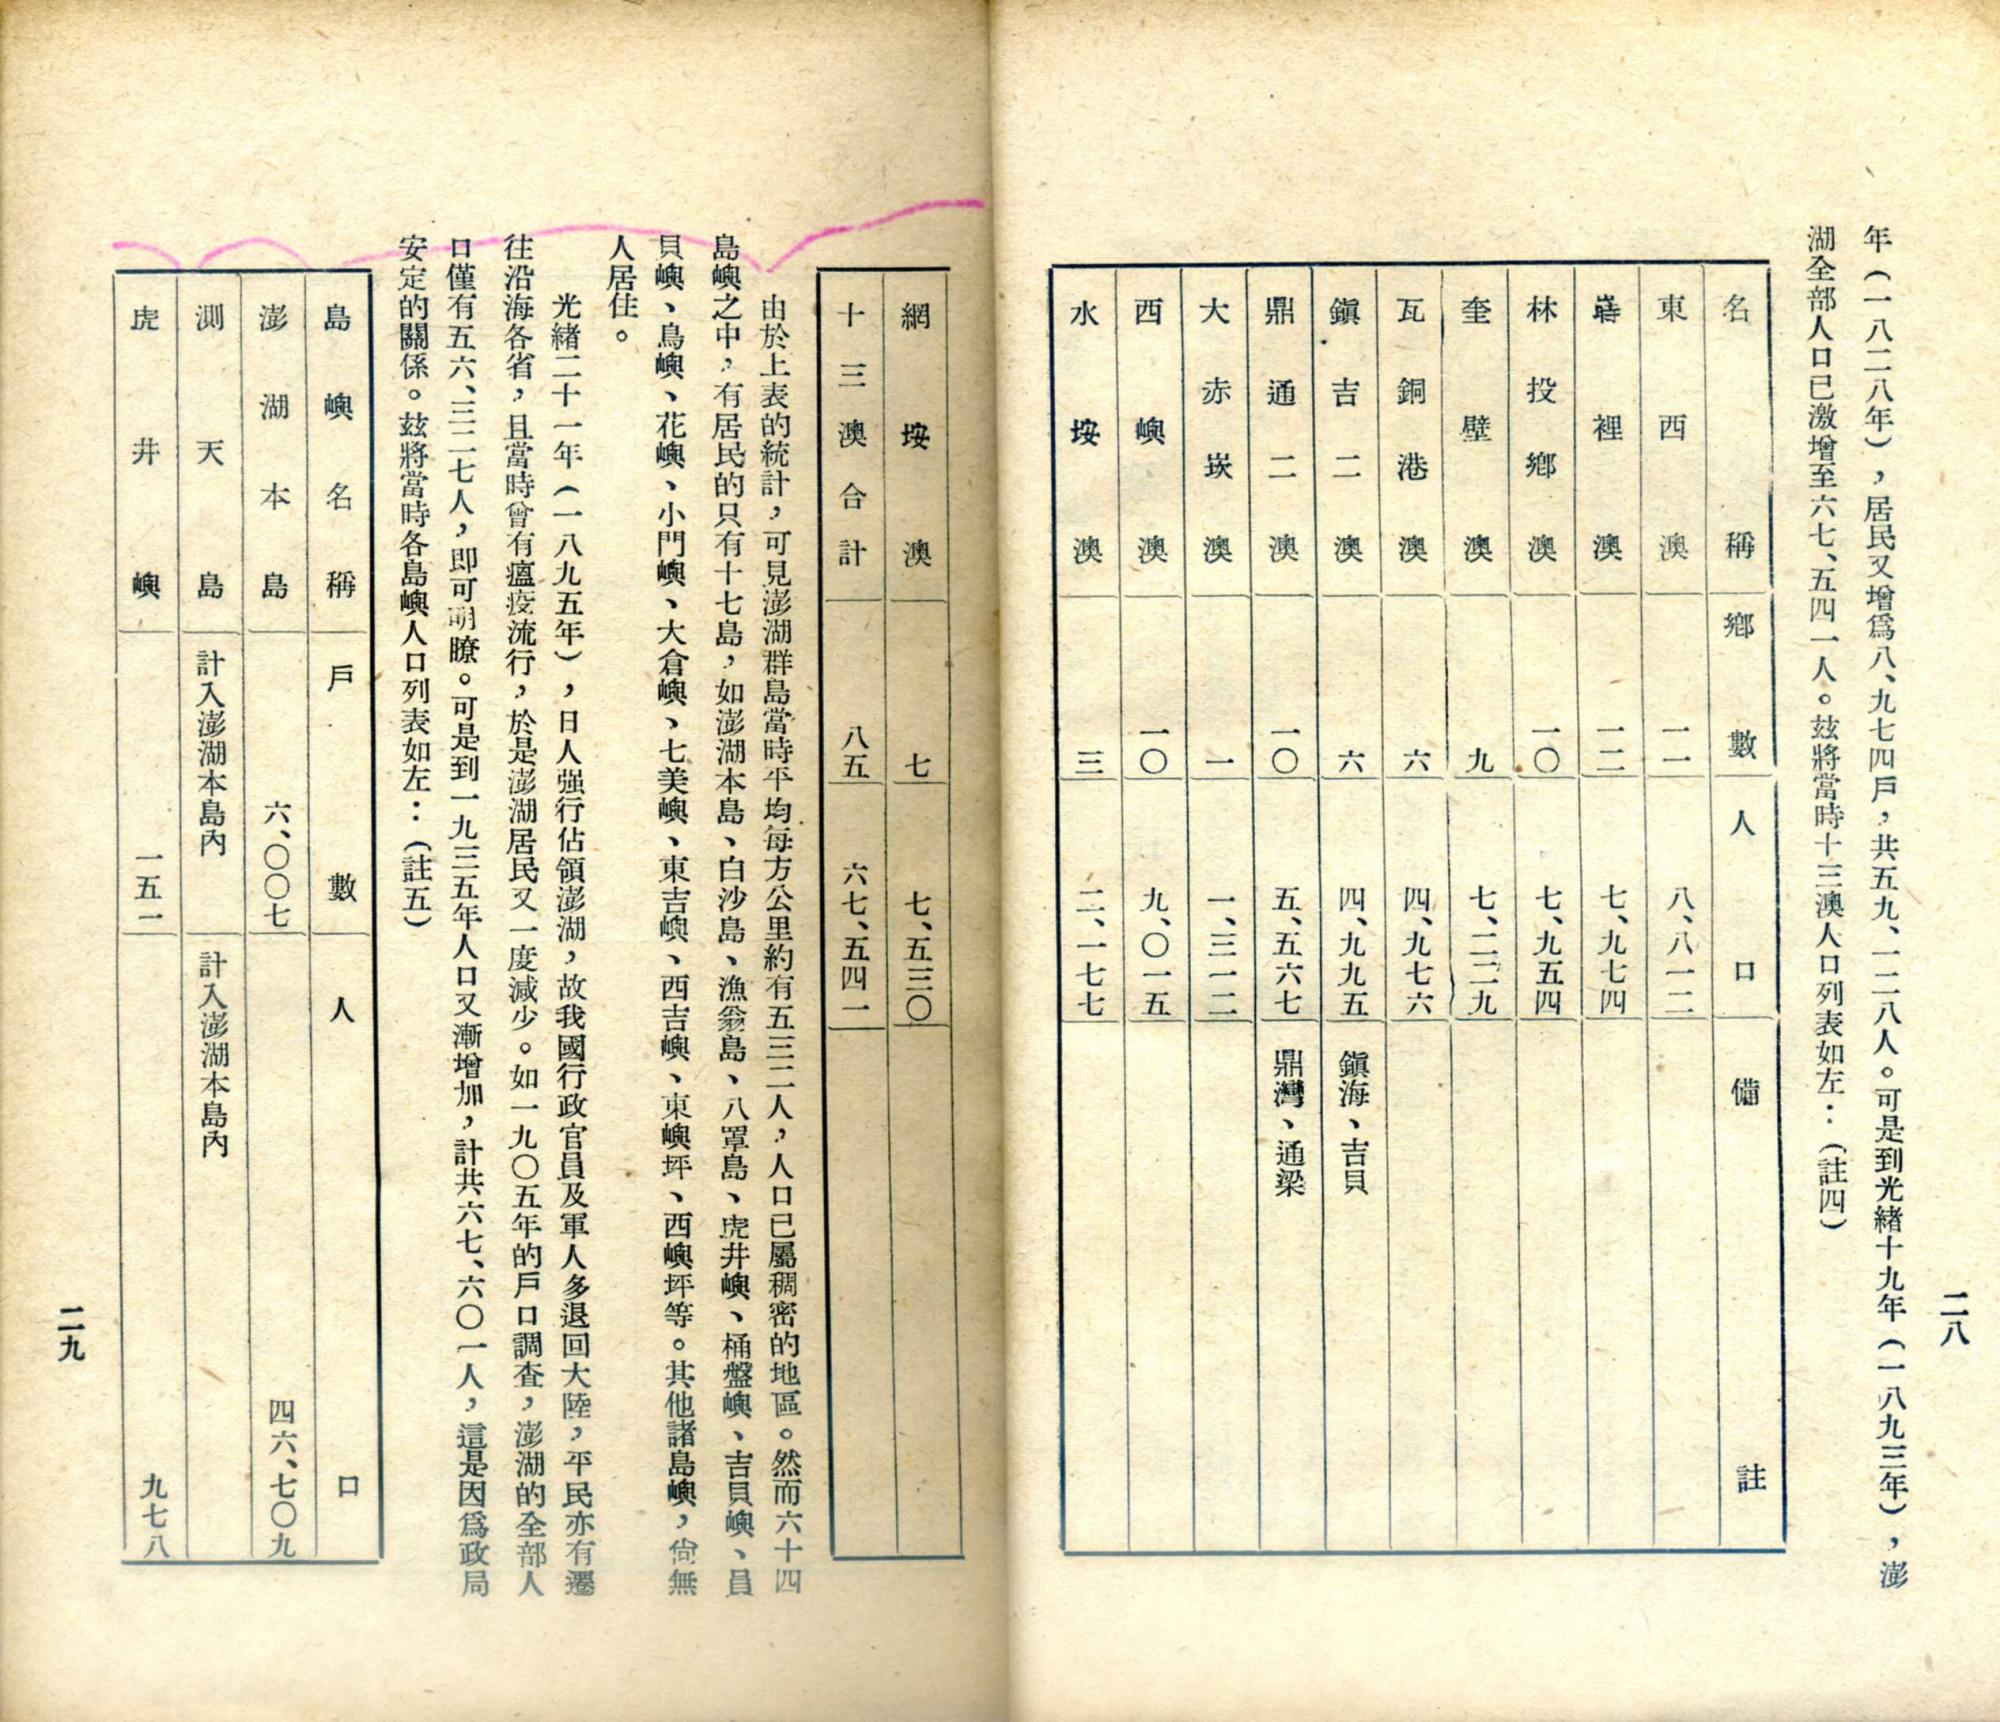 年（一八二八年），居民又增爲八、九七四戶，共五九、一二八人。可是到光緒十九年（一八九三年），澎
湖全部人口已激增至六七、五四一人。玆將當時十三澳人口列表如左：（註四）
名稱 鄉數 人口 備註
東西澳 一一 八、八一二
嵵裡澳 一二 七、九七四
林投鄉澳 一〇 七、九五四
奎壁澳 九 七、二二九
瓦銅港澳 六 四、九七六
鎭吉二澳 六 四、九九五 鎭海、吉貝
鼎通二澳 一〇 五、五六七 鼎灣、通梁
大赤崁澳 一 一、三一二
西嶼澳 一〇 九、〇一五
水垵澳 三 二、一七七
二八
網垵澳 七 七、五三〇
十三澳合計 八五 六七、五四一
由於上表的統計，可見澎湖群島當時平均每方公里約有五三二人，人口已屬稠密的地區。然而六十四
島嶼之中，有居民的只有十七島，如澎湖本島、白沙島、漁翁島、八罩島、虎井嶼、桶盤嶼、吉貝嶼、員
貝嶼、鳥嶼、花嶼、小門嶼、大倉嶼、七美嶼、東吉嶼、西吉嶼、東嶼坪、西嶼坪等。其他諸島嶼，尙無
人居住。
光緒二十一年（一八九五年），日人强行佔領澎湖，故我國行政官員及軍人多退回大陸，平民亦有遷
往沿海各省，且當時曾有瘟疫流行，於是澎湖居民又一度減少。如一九〇五年的戶口調查，澎湖的全部人
口僅有五六、三二七人，即可明瞭。可是到一九三五年人口又漸增加，計共六七、六〇一人，這是因爲政局
安定的關係。玆將當時各島嶼人口列表如左：（註五）
島嶼名稱 戶數 人口
澎湖本島 六、〇〇七 四六、七〇九
測天島 計入澎湖本島內 計入澎湖本島內
虎井嶼 一五一 九七八
二九